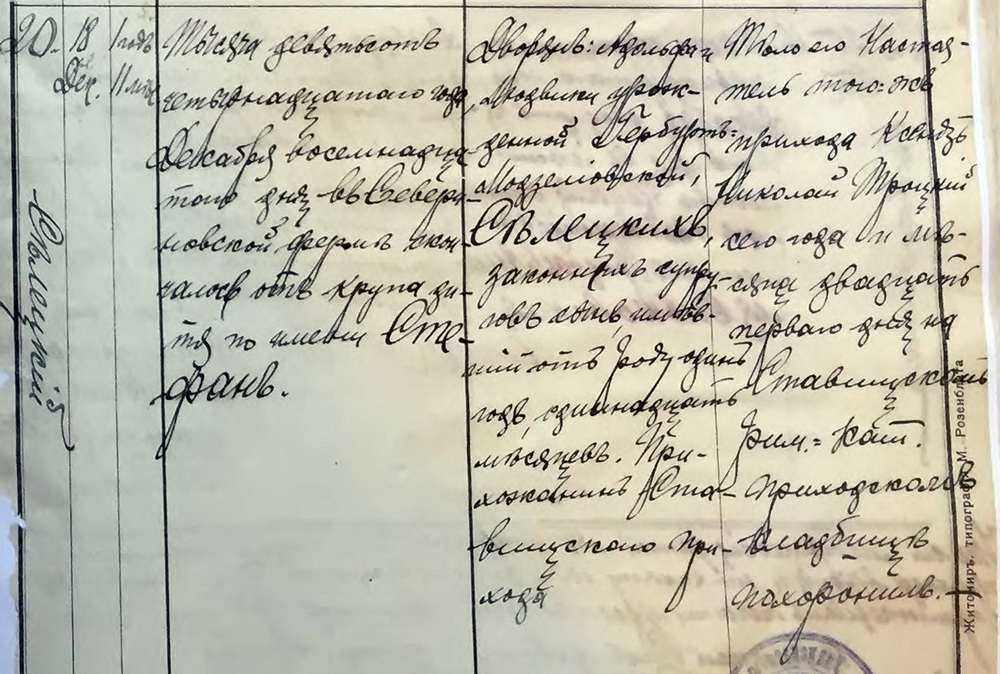 20.
18
Дек.
1 годъ
11 мѣс.
Сѣлецкій
Тысяча девятьсотъ
четырнадцатаго года,
Декабря восемнадца-
того дня въ Севери-
новской фермѣ скон-
чалось отъ крупа ди-
тя по имени Сте-
фанъ.
Дворянъ: Адольфа и
Людвики урож-
денной Гербуртъ=
Модзелювской,
Сѣлецкихъ,
законныхъ супру-
говъ сынъ, имѣв-
шій отъ роду одинъ
годъ, одиннадцать
мѣсяцевъ. При-
хожанинъ Ста-
вищскаго при-
хода
Тѣло его Настоя-
тель того=же
прихода Ксендзъ
Николай Троцкій
сего года и мѣ-
сяца двадцать
перваго дня на
Ставищскомъ
Рим.=Кат.
приходскомъ
кладбищѣ
похоронилъ.
Житомиръ. типографія М. Розенблата